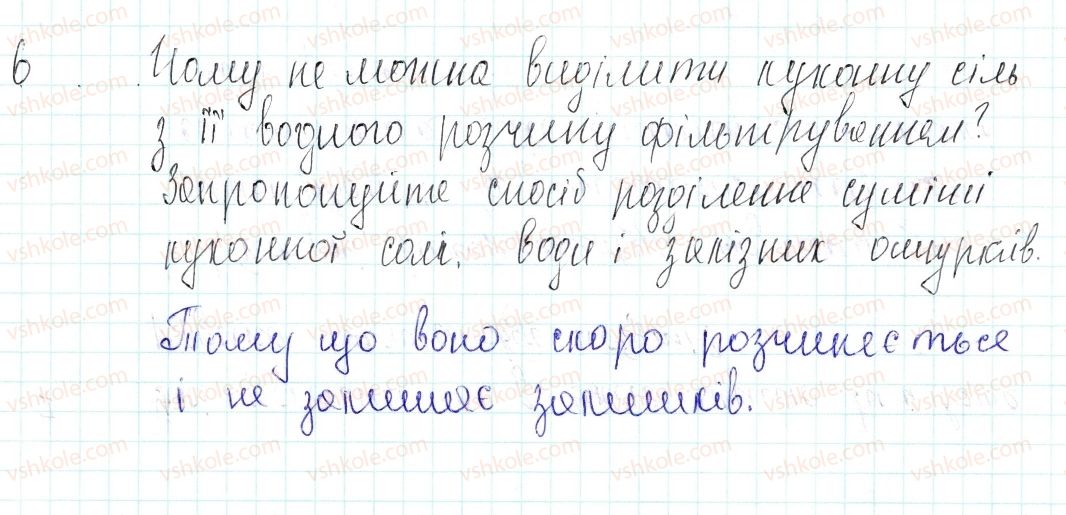 6 Чому не можна виділити кухонну сіль
з її водного розчину фільтруванням?
Запропонуйте спосіб розділення суміші
кухонної солі, води і залізних ошурків.
Тому що воно скоро розчиняється
і не залишає залишків.